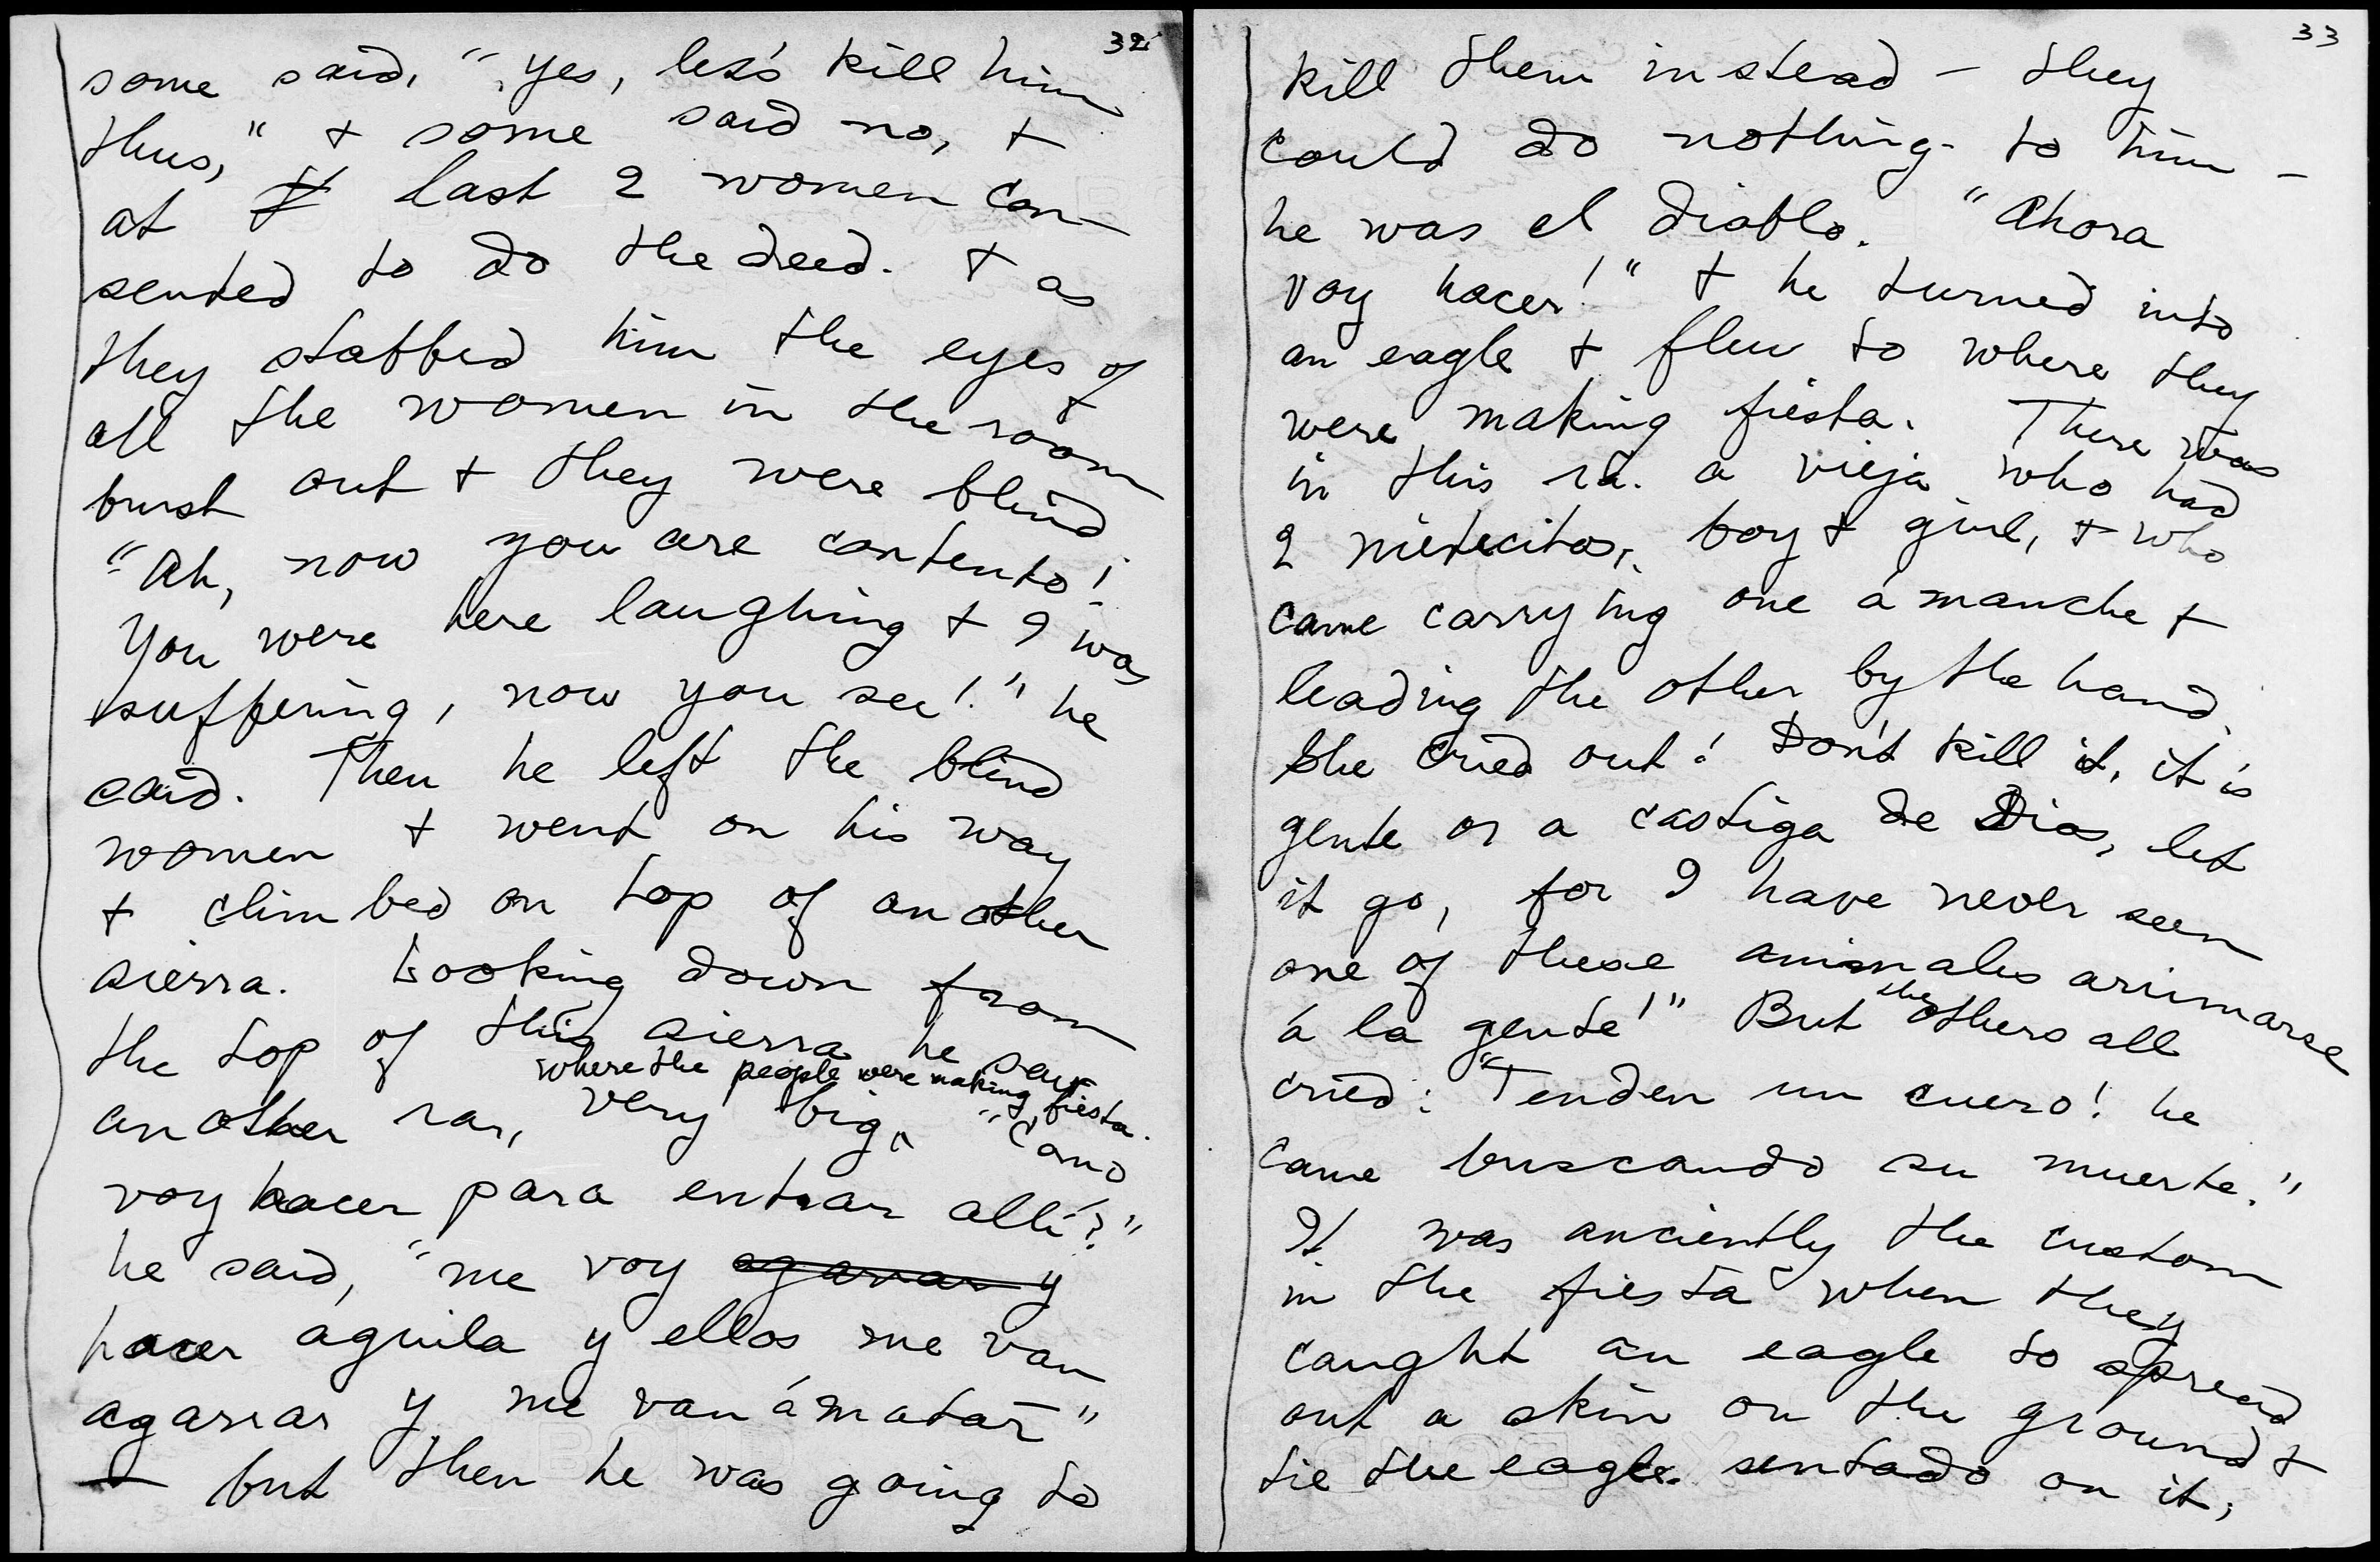 32
some said, "yes, let's kill him
thus," + some said no, +
at last 2 women con-
sented to do the deed. + as
they stabbed him the eyes of
all the women in the room
burst out + they were blind.
"Ah, now you are contento!
You were here laughing + I was
suffering, now you see!" he
said. Then he left the blind
women + went on his way
+ climbed on top of another
sierra. Looking down from
the top of this sierra he saw
where the people were making fiesta.
another ra, very big. "Como
voy hacer para entrar allí?"
he said, "me voy agarrar y
hacer aguila y ellos me van
agarrar y me van á matar"
but then he was going to
33
kill them instead - they
could do nothing to him -
he was el diablo. "Ahora
voy hacer!" + he turned into
an eagle + flew to where they
were making fiesta. There was
in this ra. a vieja who had
2 nietecitos, boy + girl, + who
came carrying one á manche +
leading the other by the hand.
She cried out! Don't kill it, it is
gente or a castiga de Dios, let
it go, for I have never seen
one of these animales arrimarse
á la gente!" But the others all
cried: "Tenden un cuero! he
came buscando su muerte."
It was anciently the custom
in the fiesta when they
caught an eagle to spread
out a skin on the ground +
tie the eagle sentado on it,